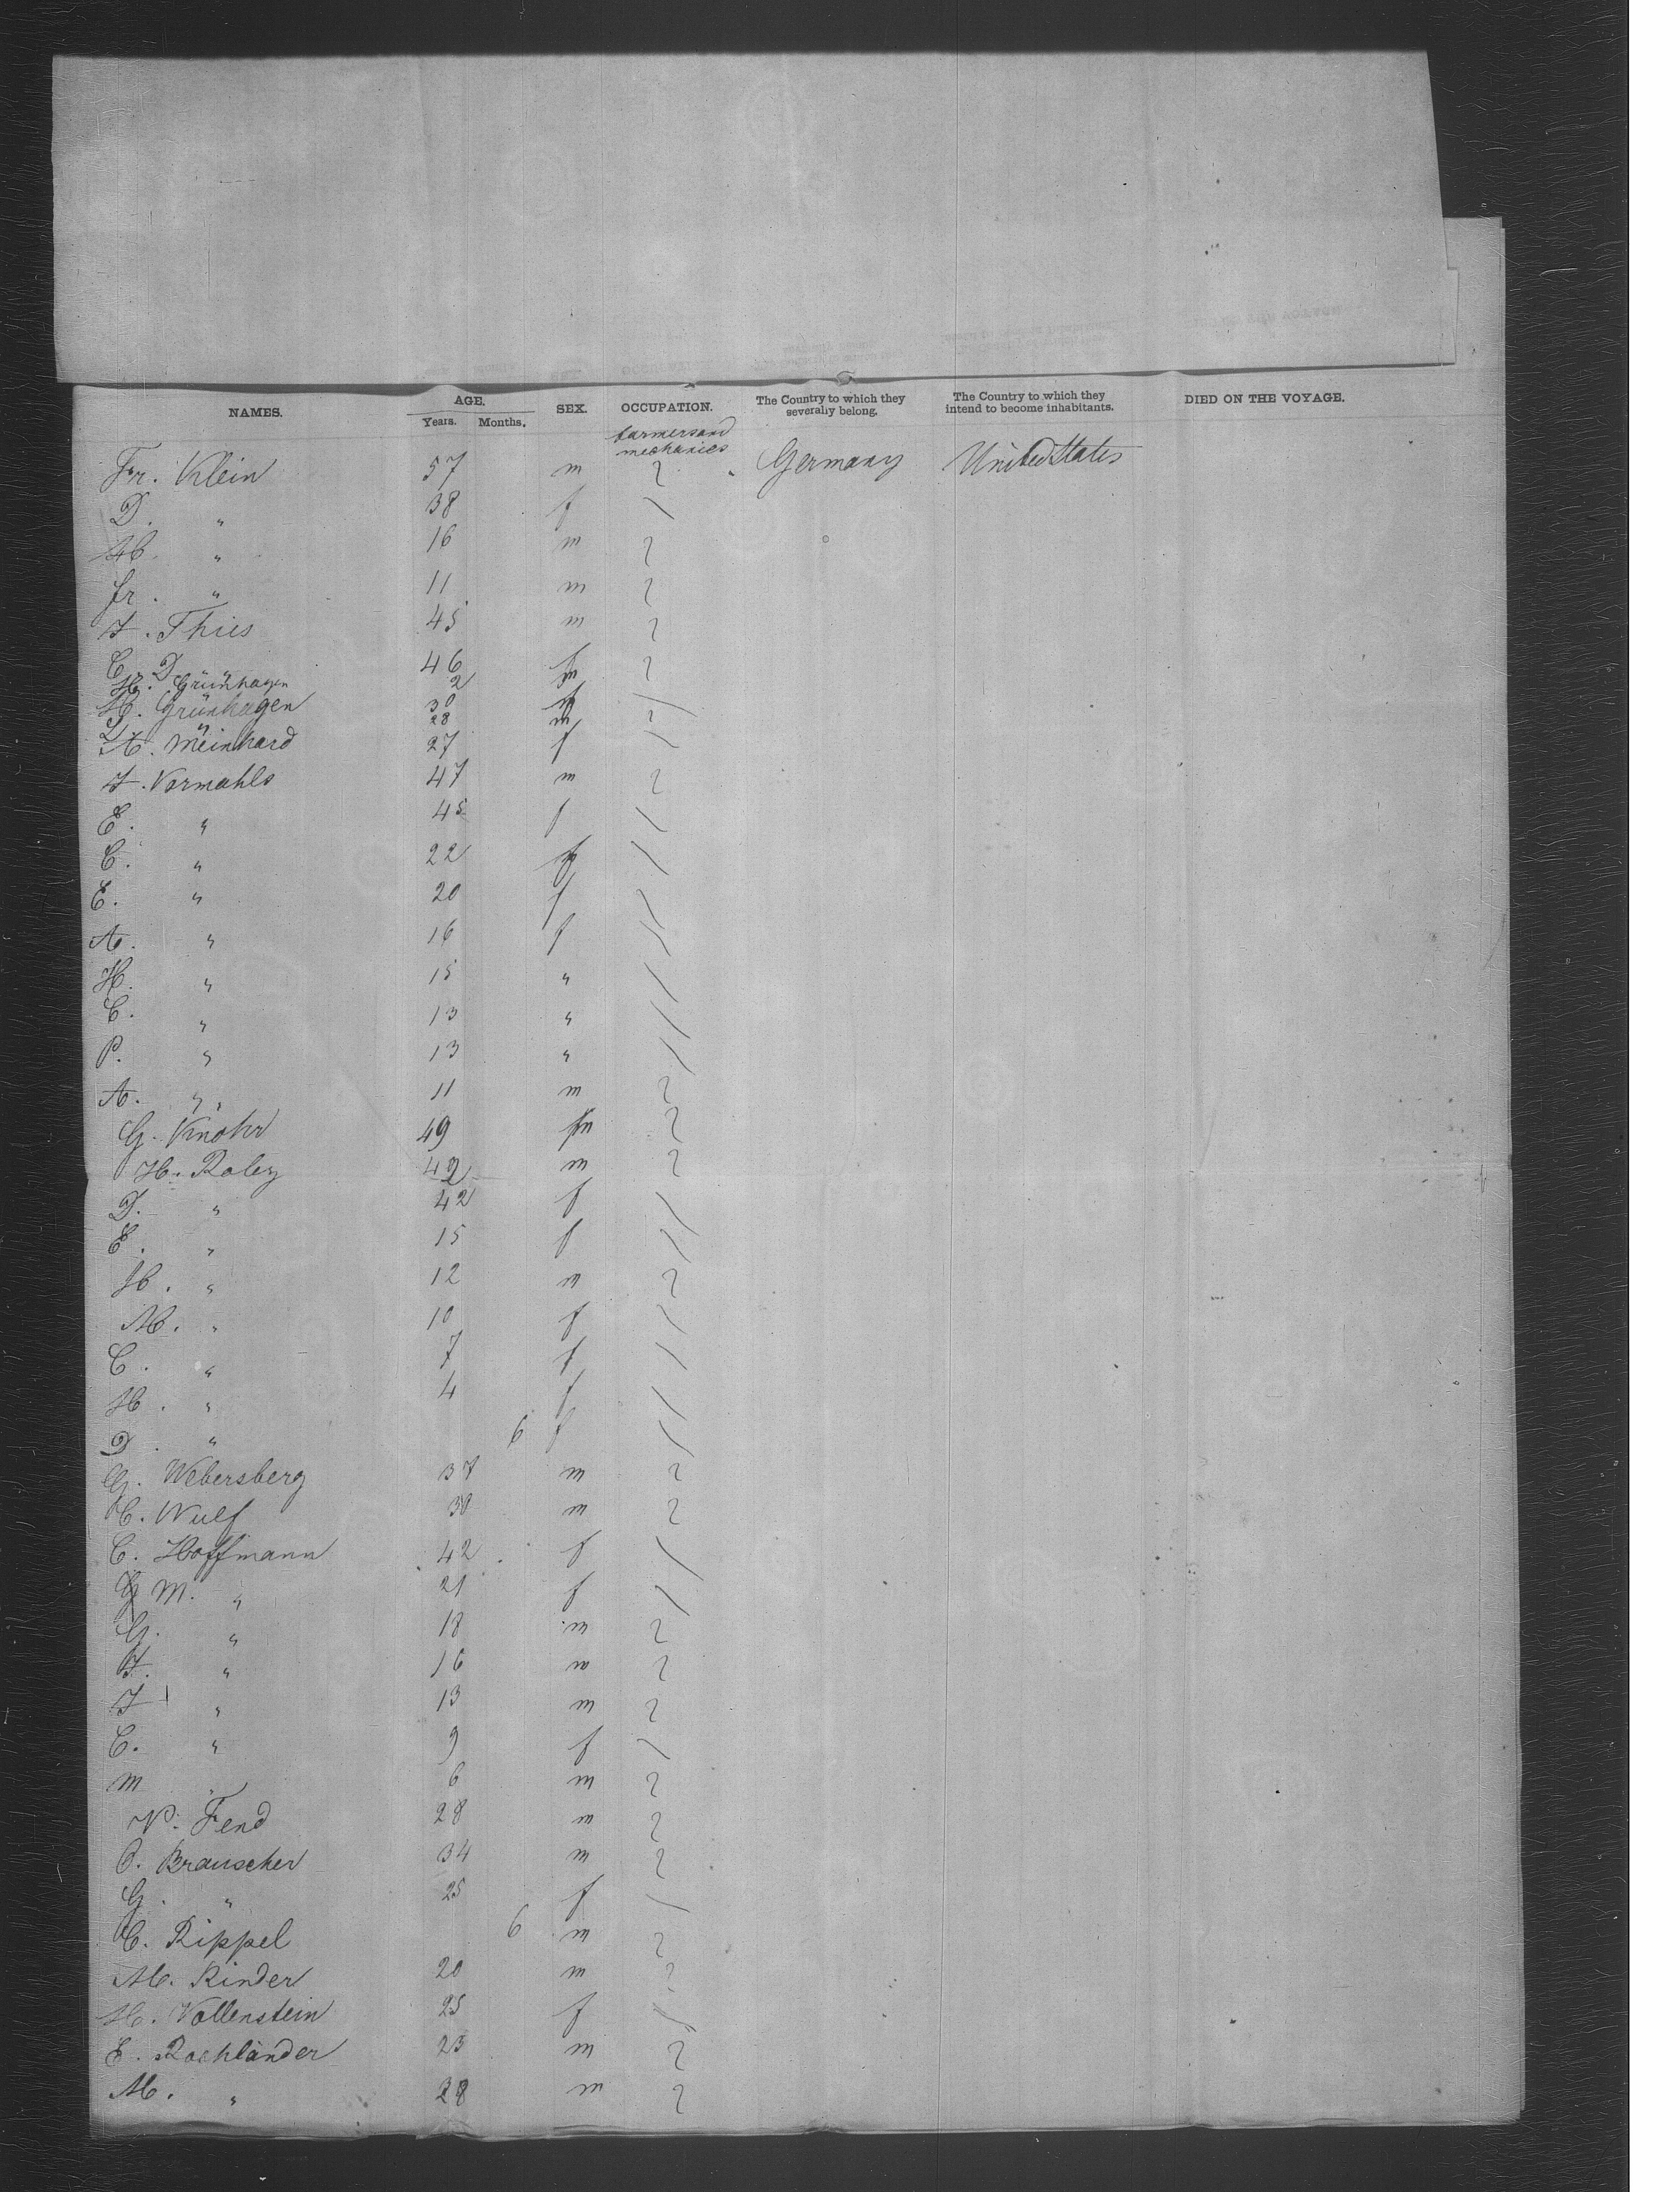 NAMES. AGE. SEX. OCCUPATION. The Country to which they severally belong. The Country to which they intend to become inhabitants. DIED ON THE VOYAGE.
Years. Months.
farmers and
mechanics
Fr. Klein 57 m " Germany United States
D. " 38 f
" 16 m
fr. " 11 m
J. Thies 45 m
C. D 46
H. Grünhagen 2
H. Grünhagen 30
" 28 m
A. Meinhard 27 f
J. Vormahls 47 m
E. " 45 f
C. " 22 f
E. " 20 f
A. " 16 f
H. " 15 "
C. " 13 "
P. " 13 "
A. " 11 m
G. Knohr 49 m
H. Raley 42 m
D. " 42 f
E. " 15 f
H. " 12 m
M. " 10 f
C. " 7 f
H. " 4 f
D. " 6 f
G. Webersberg 37 m
C. Wulf 30 m
C. Hoffmann 42 f
M. " 21 f
G. " 18 m
J. " 16 m
J " 13 m
C. " 9 f
m " 6 m
N. Fend 28 m
O. Brauscher 34 m
G. " 25 f
C. Rippel 6 m
M. Rinder 20 m
H. Vollenstein 25 f
E. Rochländer 23 m
M. " 28 m